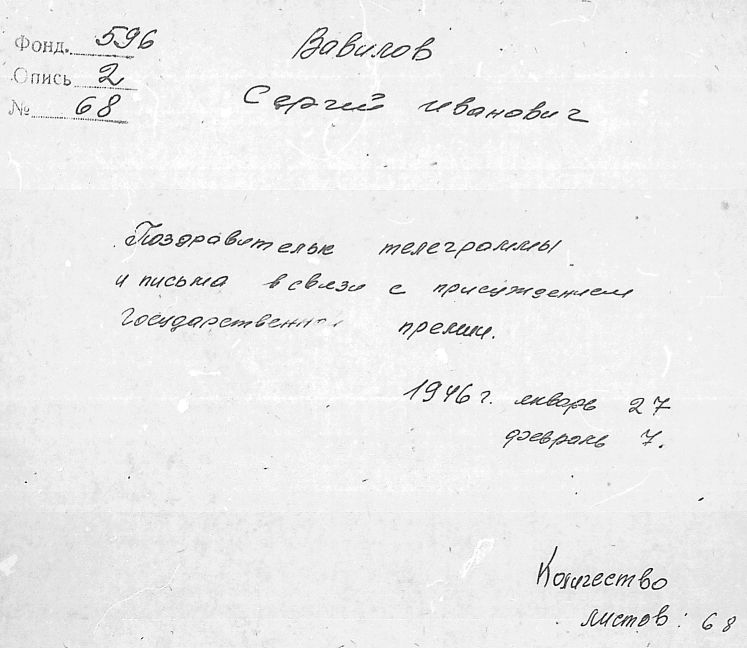 Фонд. 596
Опись 2
№ 68
Вавилов
Сергей Иванович
Поздравительн телеграммы
и письма в связи с присуждением
государственной премии.
1946 г. январь 27
февраль 7.
Количество
листов: 68